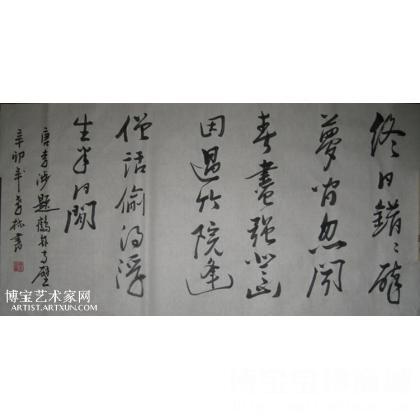 终日错々醉
夢间忽闻
春盡强登山
因過竹院逢
僧话偷得浮
生半日閒
唐李涉题鹤林寺壁
辛卯年 書
博宝艺术家网
ARTIST.ARTXUN.COM